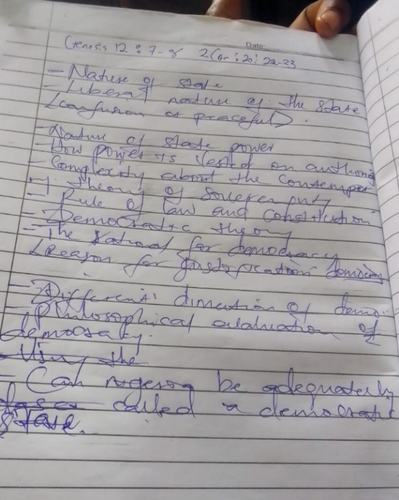 Date:
Genesis 12:7-8 2Cor:20:22-23
- Nature of state
- Liberal nature of the state
(confusion or peaceful).
- Nature of state power
- How power is vested on
- Complexity about the
- Theory of sovereignty
- Rule of law and constitution
- Democratic theory
- The rational for democracy
(Reason for justification
- Different dimention of demo-
- Philosophical evaluation of
democracy.
- Using the
- Can nigeria be adequately
called a democratic
state.